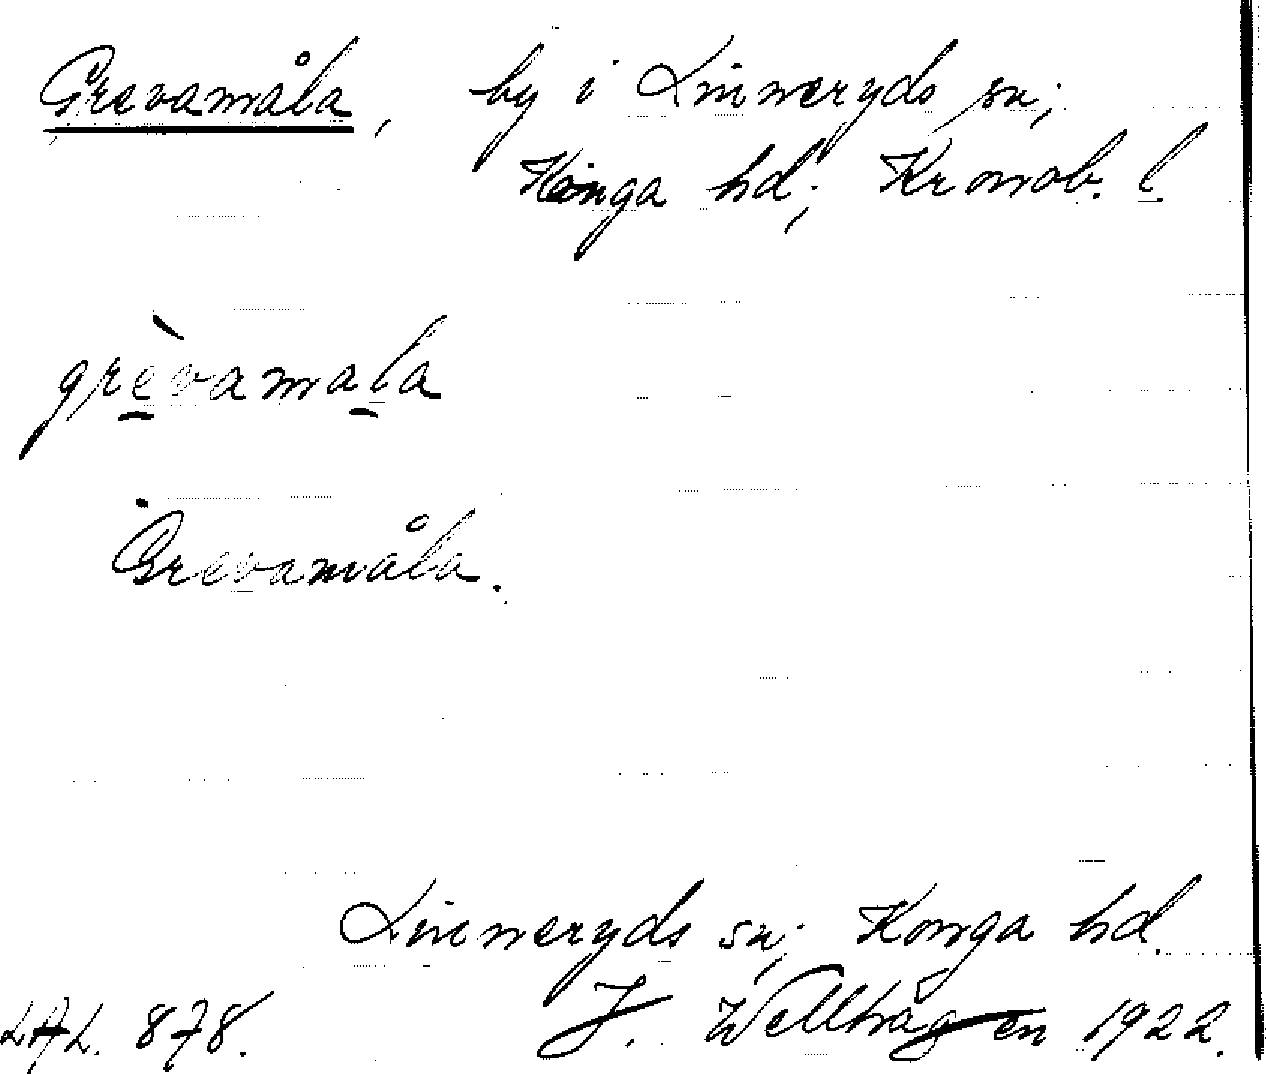 Grevamåla, by i Linneryds sn;
Konga hd; Kronob. l.
grèvamala
Grevamåla.
Linneryds sn; Konga hd.
LAL. 878. J. Wellhagen 1922.